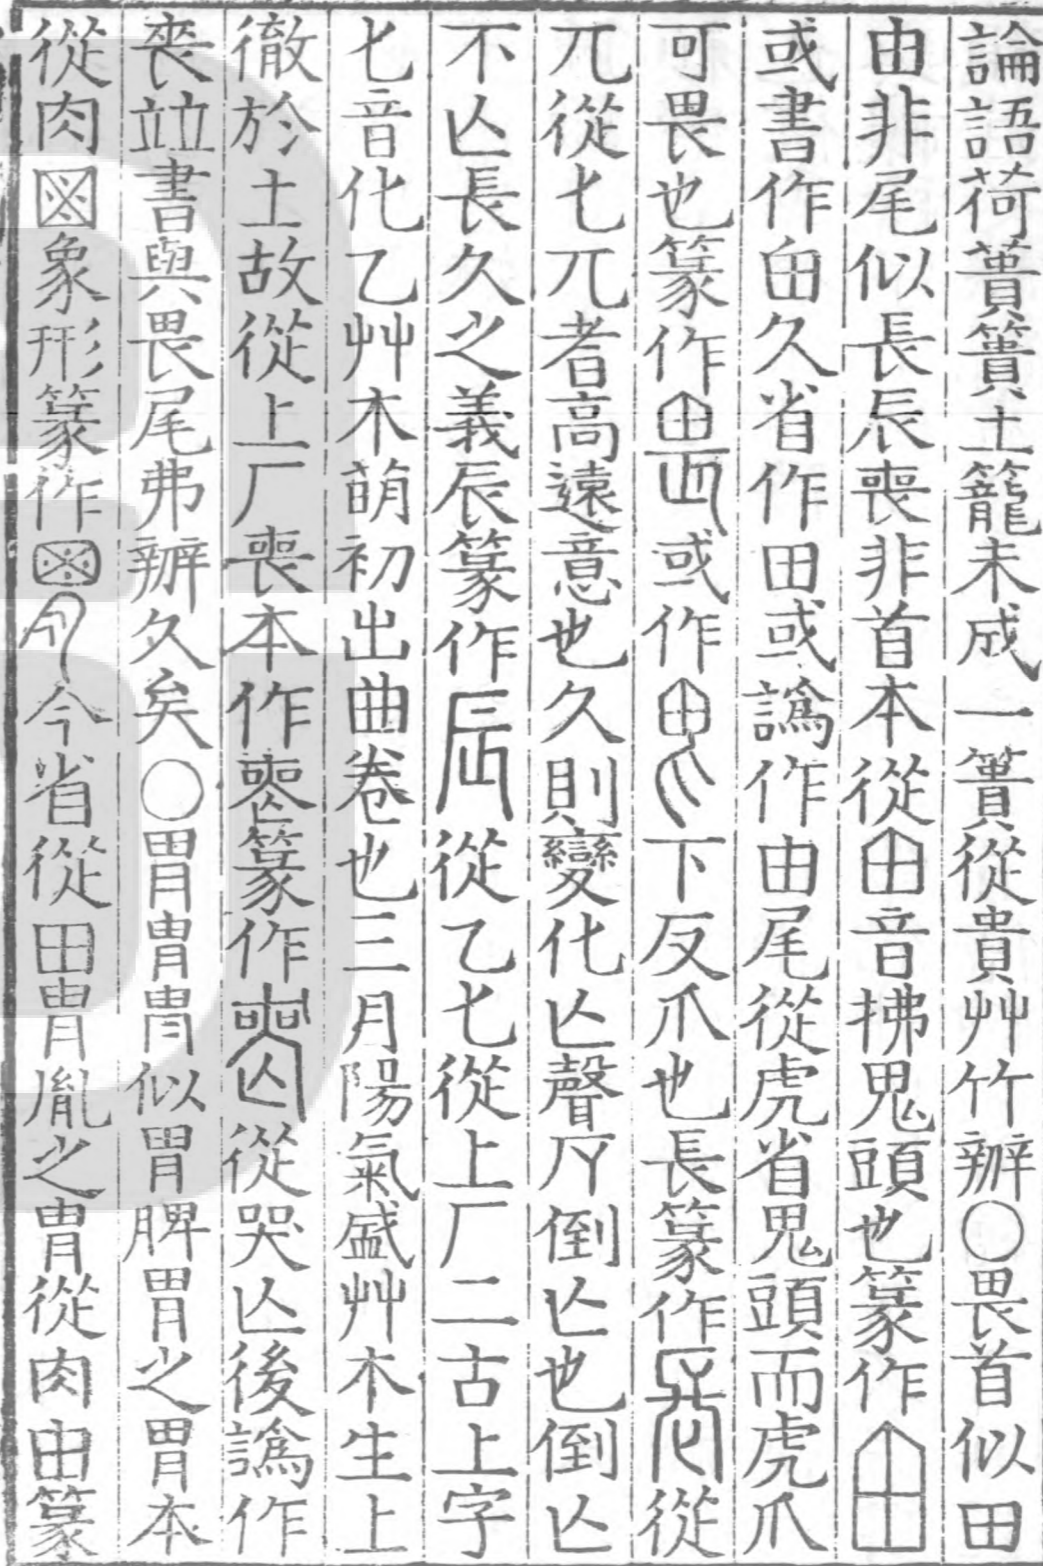 論語荷蕢簣土籠未成一簣從貴艸竹辦〇畏首似田
由非尾似長辰喪非首本從甶音拂鬼頭也篆作甶
或書作甶久省作田或譌作由尾從虎省鬼頭而虎爪
可畏也篆作或作下反爪也長篆作從
兀從𠤎兀者高遠意也久則變化亾聲𠂆倒亾也倒亾
不亾長久之義辰篆作從乙𠤎從上厂二古上字
𠤎音化乙艸木萌初出曲卷也三月陽氣盛艸木生上
徹於土故從上厂喪本作䘮篆作從哭亾後譌作
喪竝書與畏尾弗辦久矣〇胃胄冑似胃脾胃之胃本
從肉𡇒象形篆作今省從田胄胤之胄從肉由篆